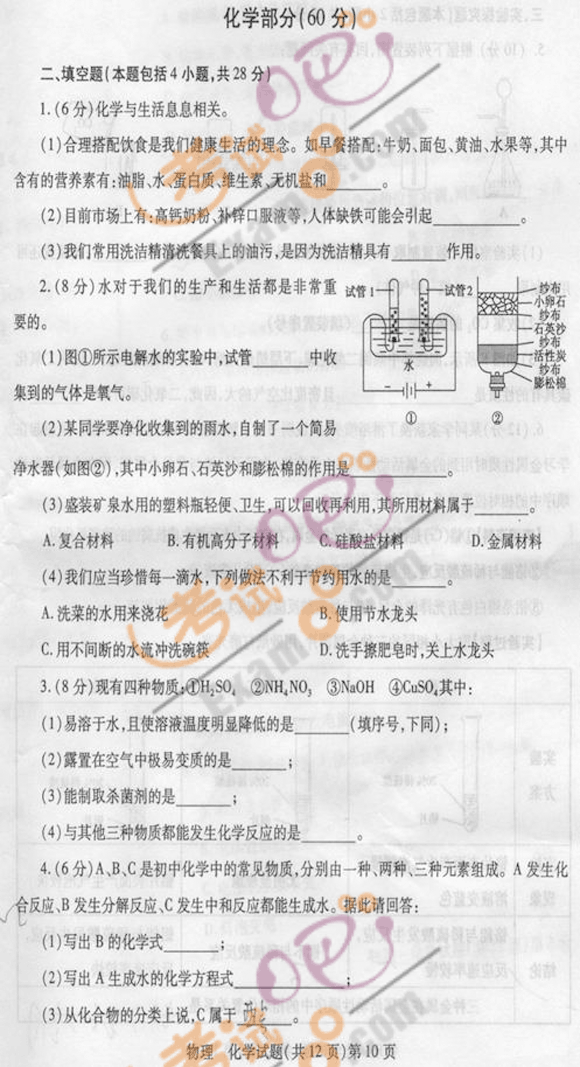 化学部分(60分)
二、填空题(本题包括4小题,共28分)
1.(6分)化学与生活息息相关。
(1)合理搭配饮食是我们健康生活的理念。如早餐搭配:牛奶、面包、黄油、水果等,其中
含有的营养素有:油脂、水、蛋白质、维生素、无机盐和______。
(2)目前市场上有:高钙奶粉、补锌口服液等,人体缺铁可能会引起__________。
(3)我们常用洗洁精清洗餐具上的油污,是因为洗洁精具有______作用。
2.(8分)水对于我们的生产和生活都是非常重
要的。
(1)图①所示电解水的实验中,试管______中收
集到的气体是氧气。
(2)某同学要净化收集到的雨水,自制了一个简易
净水器(如图②),其中小卵石、石英沙和膨松棉的作用是__________。
试管1
试管2
水
- +
①
纱布
小卵石
纱布
石英沙
纱布
活性炭
纱布
膨松棉
②
(3)盛装矿泉水用的塑料瓶轻便、卫生,可以回收再利用,其所用材料属于______。
A.复合材料 B.有机高分子材料 C.硅酸盐材料 D.金属材料
(4)我们应当珍惜每一滴水,下列做法不利于节约用水的是______。
A.洗菜的水用来浇花 B.使用节水龙头
C.用不间断的水流冲洗碗筷 D.洗手擦肥皂时,关上水龙头
3.(8分)现有四种物质:①H₂SO₄ ②NH₄NO₃ ③NaOH ④CuSO₄其中:
(1)易溶于水,且使溶液温度明显降低的是______(填序号,下同);
(2)露置在空气中极易变质的是______;
(3)能制取杀菌剂的是______;
(4)与其他三种物质都能发生化学反应的是______。
4.(6分)A、B、C是初中化学中的常见物质,分别由一种、两种、三种元素组成。A发生化
合反应、B发生分解反应、C发生中和反应都能生成水。据此请回答:
(1)写出B的化学式______;
(2)写出A生成水的化学方程式____________;
(3)从化合物的分类上说,C属于______。
物理 化学试题(共12页)第10页
考试吧
Exam8.com
考试吧
Exam8.com
考试吧